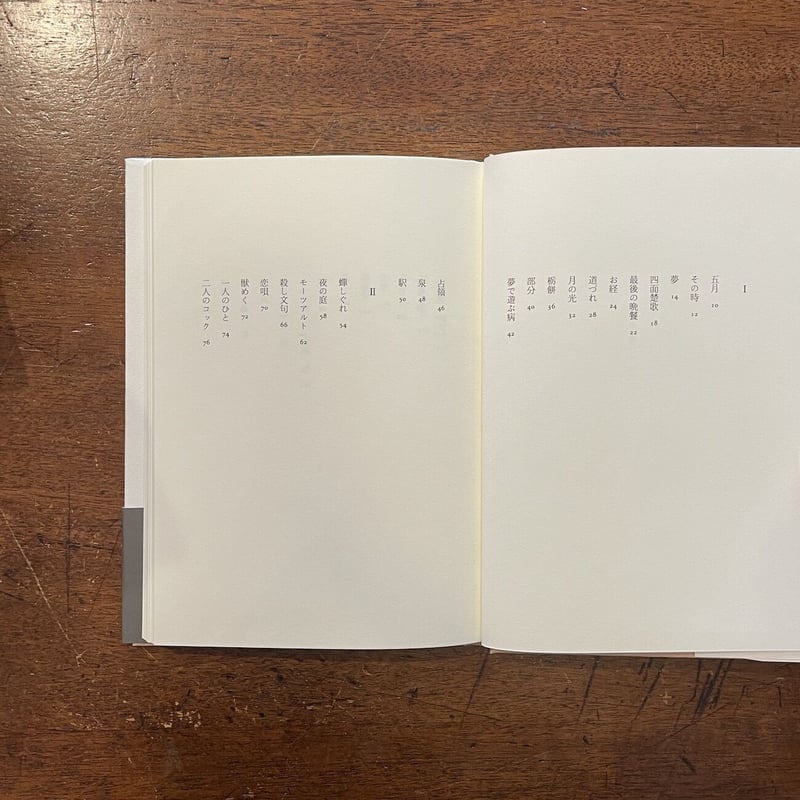 I
五月 10
その時 12
夢 14
四面楚歌 18
最後の晩餐 22
お経 24
道づれ 28
月の光 32
栃餅 36
部分 40
夢で遊ぶ病 42
占領 46
泉 48
駅 50
II
蟬しぐれ 54
夜の庭 58
モーツアルト 62
殺し文句 66
恋唄 70
獣めく 72
一人のひと 74
二人のコック 76